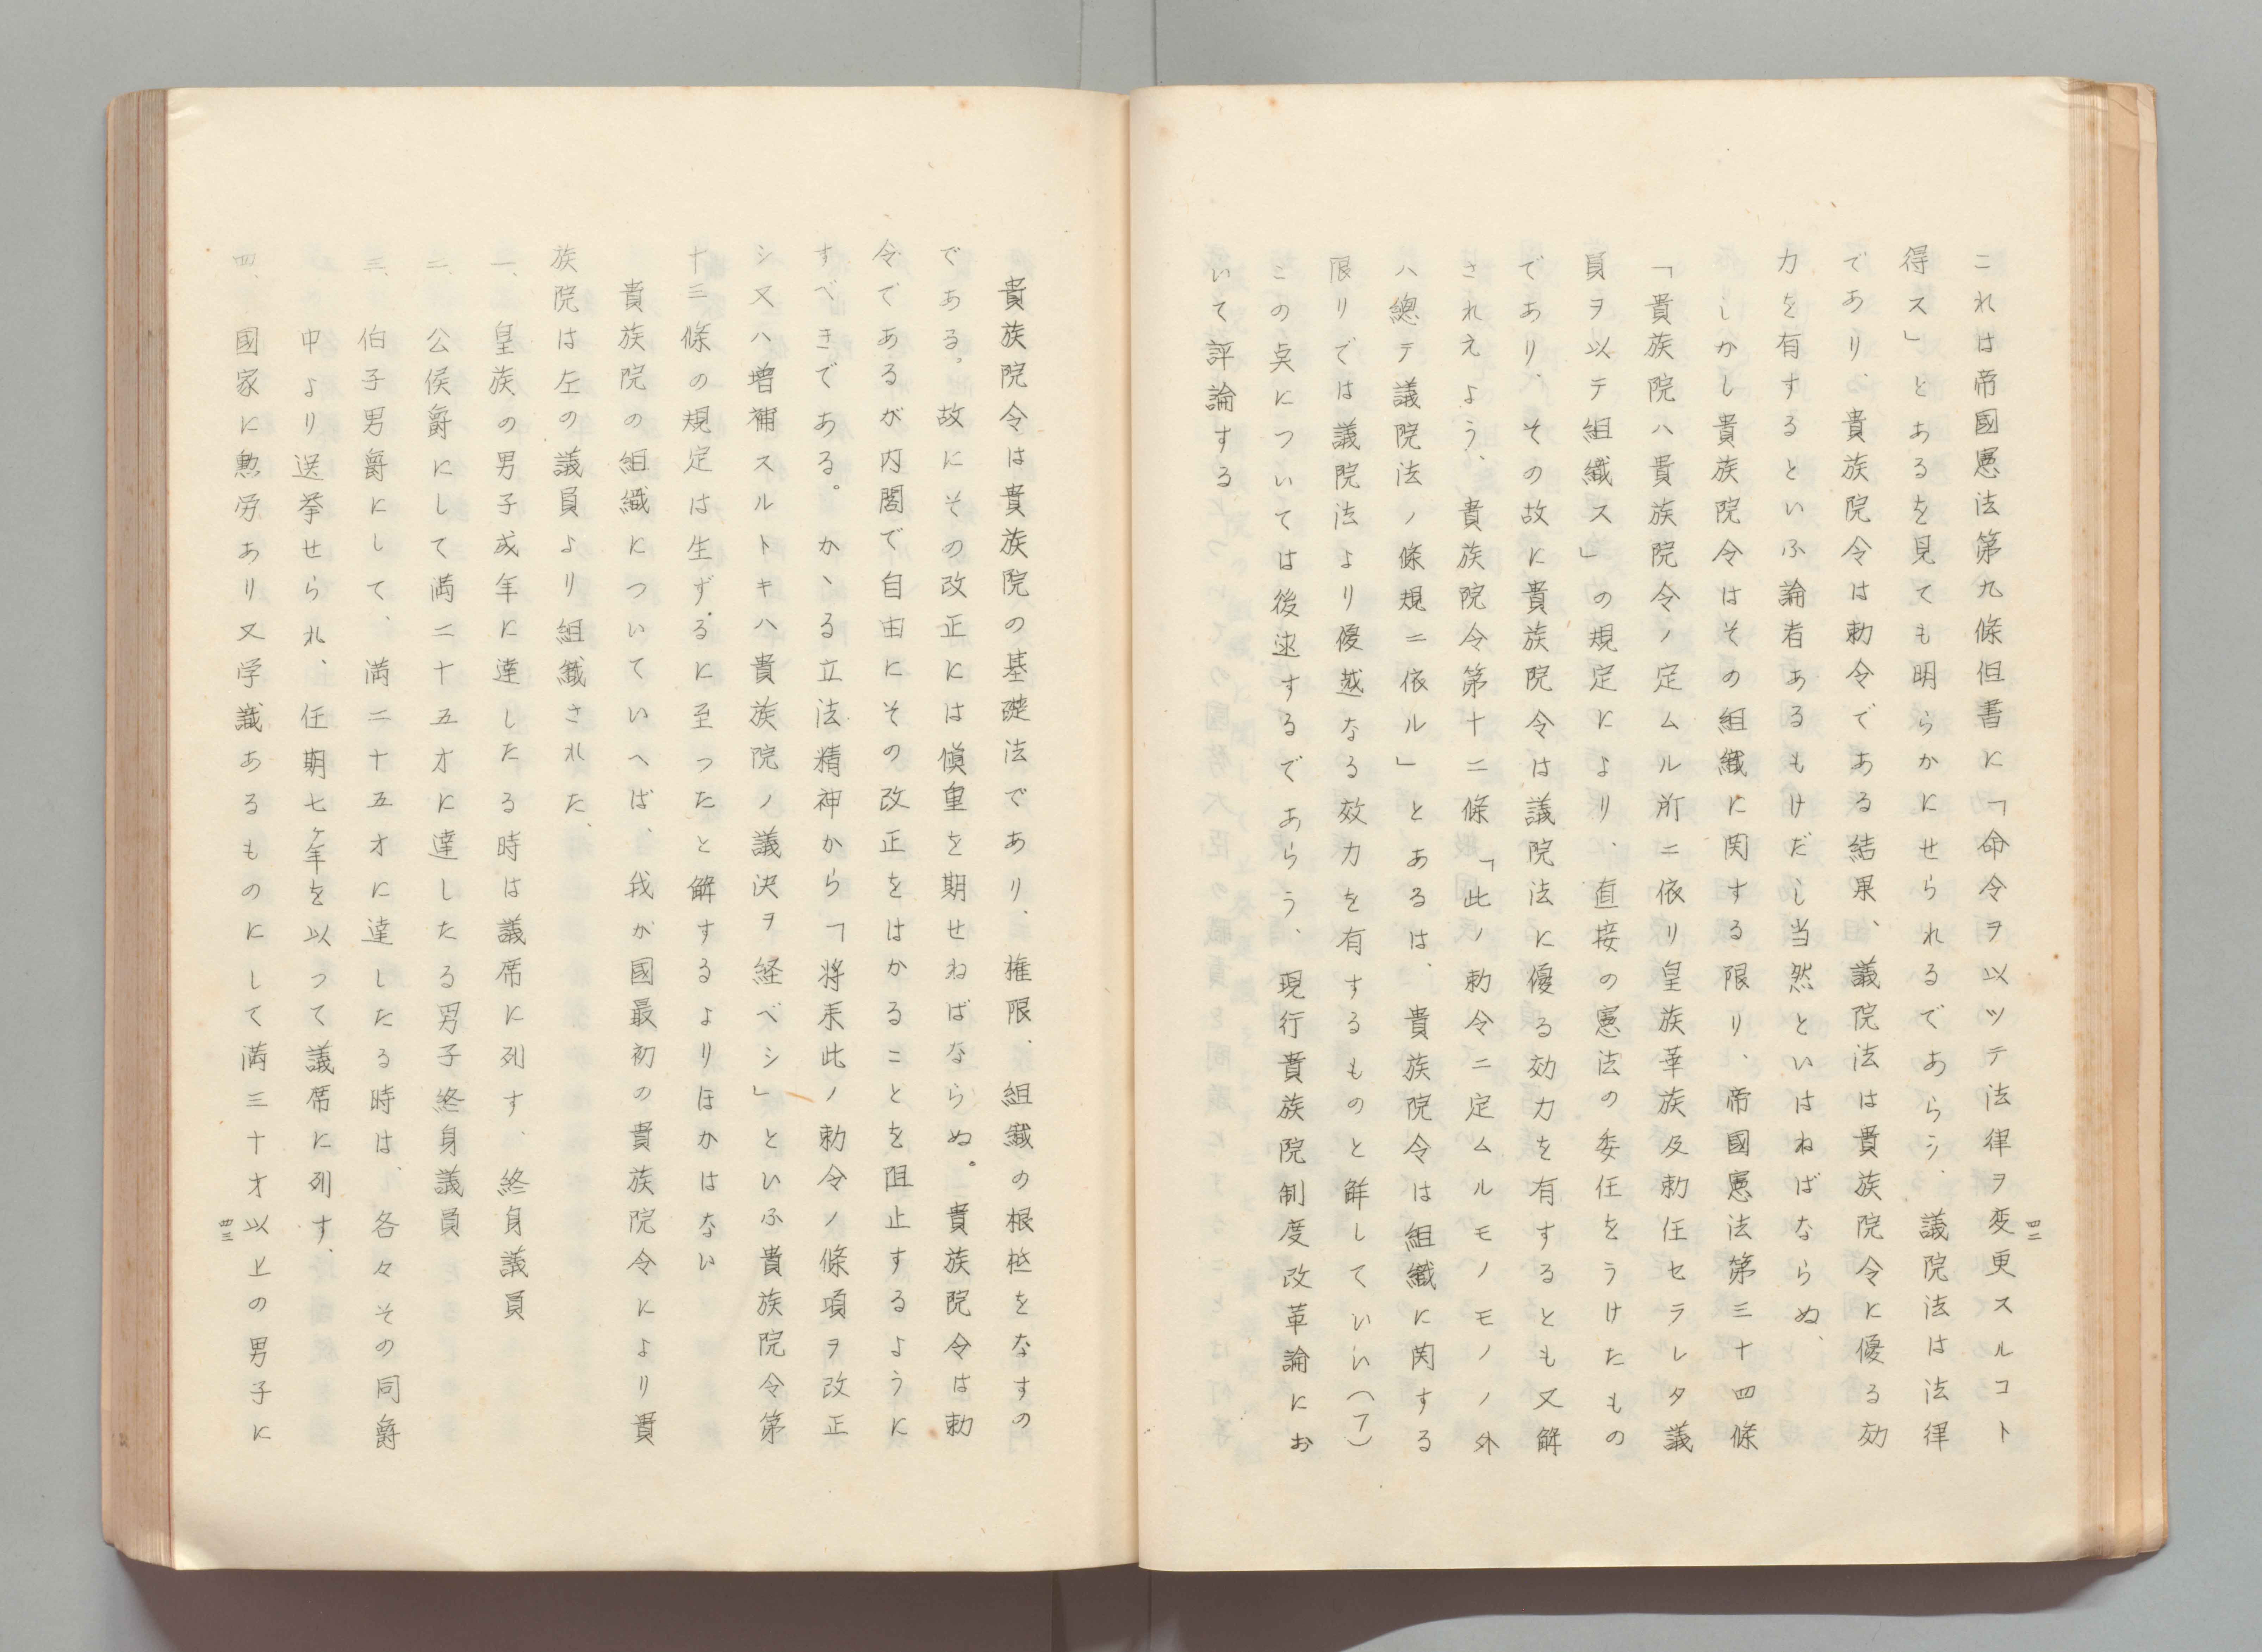 これは帝國憲法第九條但書に「命令ヲ以ツテ法律ヲ変更スルコト
得ス」とあるを見ても明らかにせられるであらう、議院法は法律
であり、貴族院令は勅令である結果、議院法は貴族院令に優る効
力を有するといふ論者あるもけだし当然といはねばならぬ、
しかし貴族院令はその組織に関する限り、帝國憲法第三十四條
「貴族院ハ貴族院令ノ定ムル所ニ依リ皇族華族及勅任セラレタ議
員ヲ以テ組織ス」の規定により、直接の憲法の委任をうけたもの
であり、その故に貴族院令は議院法に優る効力を有するとも又解
されえよう、貴族院令第十二條「此ノ勅令ニ定ムルモノモノノ外
ハ總テ議院法ノ條規ニ依ル」とあるは、貴族院令は組織に関する
限りでは議院法より優越なる效力を有するものと解していい(7)
この点については後述するであらう、現行貴族院制度改革論にお
いて評論する
四二
貴族院令は貴族院の基礎法であり、権限、組織の根柢をなすの
である。故にその改正には慎重を期せねばならぬ。貴族院令は勅
令であるが内閣で自由にその改正をはかることを阻止するように
すべきである。かゝる立法精神から「将来此ノ勅令ノ條項ヲ改正
シ又ハ増補スルトキハ貴族院ノ議決ヲ経ベシ」といふ貴族院令第
十三條の規定は生ずるに至つたと解するよりほかはない
貴族院の組織についていへば、我が國最初の貴族院令により貴
族院は左の議員より組織された、
一、皇族の男子成年に達したる時は議席に列す、終身議員
二、公侯爵にして満二十五才に達したる男子終身議員
三、伯子男爵にして、満二十五才に達したる時は、各々その同爵
中より送挙せられ、任期七ヶ年を以つて議席に列す、
四、國家に勲労あり又学識あるものにして満三十才以上の男子に
四三